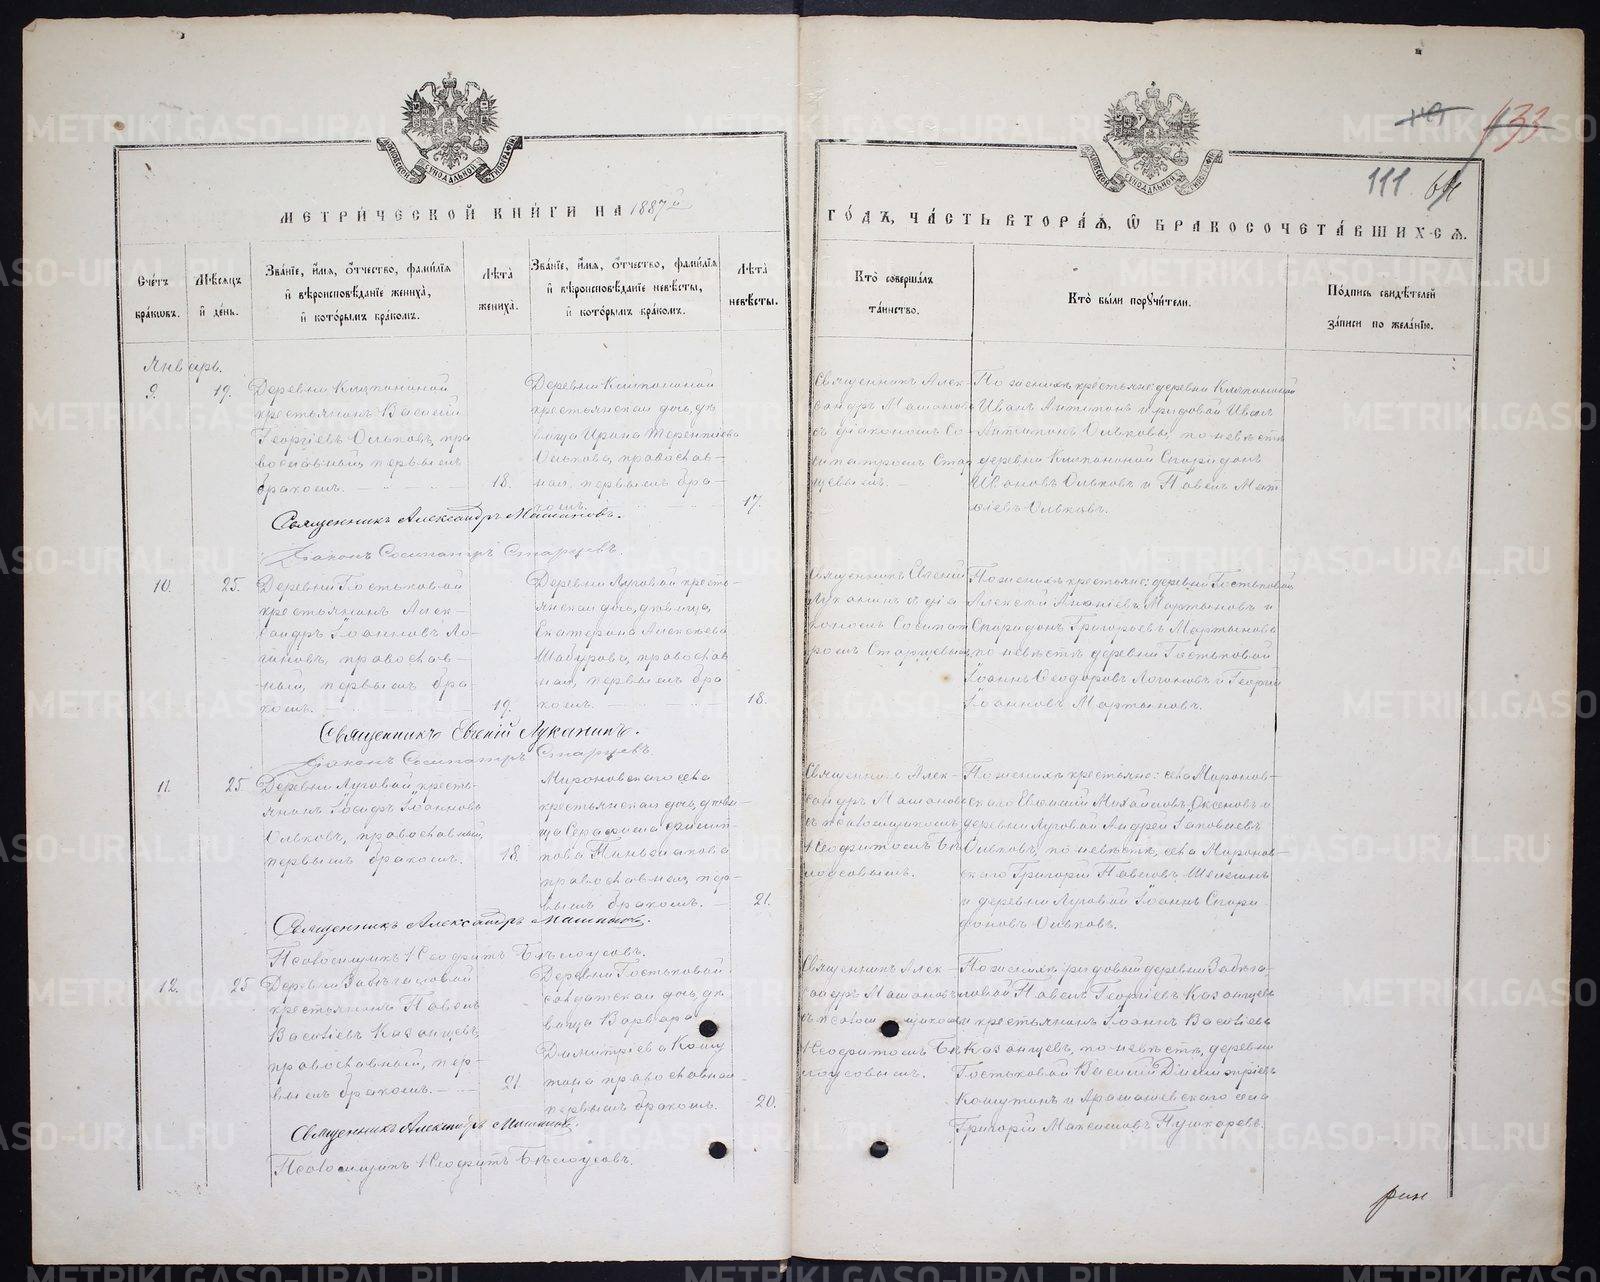 МЕТРИ́ЧЕСКОЙ КНИ́ГИ НА 1887й
ГО́ДЪ, ЧА́СТЬ ВТОРА́Я, Ѡ БРАКОСОЧЕТА́ВШИХ-СЯ.
111
133
Сче́тъ бра́кѡвъ.
Мѣ́сяцъ й де́нь.
Зва́нїе, и́мя, ѻ́тчество, фами́лїя й вѣроисповѣ́данїе жениха̀, й кото́рымъ бра́комъ.
Лѣ́та жениха̀.
Зва́нїе, и́мя, ѻ́тчество, фами́лїя й вѣроисповѣ́данїе невѣ́сты, й кото́рымъ бра́комъ.
Лѣ́та невѣ́сты.
Кто̀ соверша́лъ та́инство.
Кто̀ бы́ли порꙋчи́тели.
По́дпись свидѣ́телей за́писи по жела́нїю.
Январь.
9.
19.
Деревни
крестьянинъ Василій
Георгіевъ Ольковъ, пра
вославный, первымъ
бракомъ.
18.
Деревни
крестьянская дочь, дѣ
вица Ирина Терентіева
Олькова, православ-
ная, первымъ бра-
комъ.
17.
Священникъ Алек-
сандръ
съ діакономъ Со-
сипатромъ Стар
цевымъ.
По женихѣ крестьяне деревни
Иванъ Антипинъ и рядовой Иванъ
Антипинъ Ольковы, по невѣстѣ
деревни Спиридонъ
Ивановъ Ольковъ и Павелъ Мат
Ольковъ.
Священникъ Александръ
Діаконъ Сосипатръ Старцевъ.
10.
25.
Деревни Гостьковой
крестьянинъ Алек-
сандръ Іоанновъ Ло-
гиновъ, православ-
ный, первымъ бра-
комъ.
19.
Деревни Луговой кресть-
янская дочь, дѣвица,
Екатерина Алексѣева
Шабурова, православ
ная, первымъ бра
комъ.
18.
Священникъ Евгеній
Лукинъ съ діа
кономъ Сосипат
ромъ Старцевымъ
По женихѣ крестьяне: деревни Гостьковой
Алексѣй Ананіевъ Мартыновъ и
Спиридонъ Григорьевъ Мартыновъ
по невѣстѣ деревни Гостьковой
Іоаннъ Ѳеодоровъ Логиновъ и Георгій
Іоанновъ Мартыновъ.
Священникъ Евгеній Лукининъ.
Діаконъ Сосипатръ Старцевъ
11.
25
Деревни Луговой кресть-
янинъ Іосифъ Іоанновъ
Ольковъ, православный,
первымъ бракомъ.
18.
Мироновскаго села
крестьянская дочь, дѣви-
ца Серафима Филип-
пова
православная, пер-
вымъ бракомъ.
21.
Священникъ Алек-
сандръ
съ псаломщикомъ
Неофитомъ Бѣ
лоусовымъ.
По женихѣ крестьяне: села Миронов-
скаго Евгеній Михайловъ Оксеновъ и
деревни Луговой Андрей Іаковлевъ
Ольковъ, по невѣстѣ, села Миронов-
скаго Григорій Павловъ
и деревни Луговой Іоаннъ Спири
доновъ Ольковъ.
Священникъ Александръ
Псаломщикъ Неофитъ Бѣлоусовъ.
12.
25
Деревни Забѣгаловой
крестьянинъ Павелъ
Василіевъ Казанцевъ,
православный, пер-
вымъ бракомъ.
21.
Деревни Гостьковой
солдатская дочь, дѣ
вица Варвара
Димитріева Кошу
тина православная
первымъ бракомъ.
20.
Священникъ Алек-
сандръ
съ псаломщикомъ
Неофитомъ Бѣ
лоусовымъ.
По женихѣ рядовой деревни Забѣга-
ловой Павелъ Георгіевъ Казанцевъ
и крестьянинъ Іоаннъ Василіевъ
Казанцевъ, по невѣстѣ, деревни
Гостьковой Василій Димитріевъ
Кошутинъ и Арамашевскаго села
Григорій Максимовъ Пушкаревъ.
Священникъ Александръ
Псаломщикъ Неофитъ Бѣлоусовъ.
METRIKI.GASO-URAL.RU